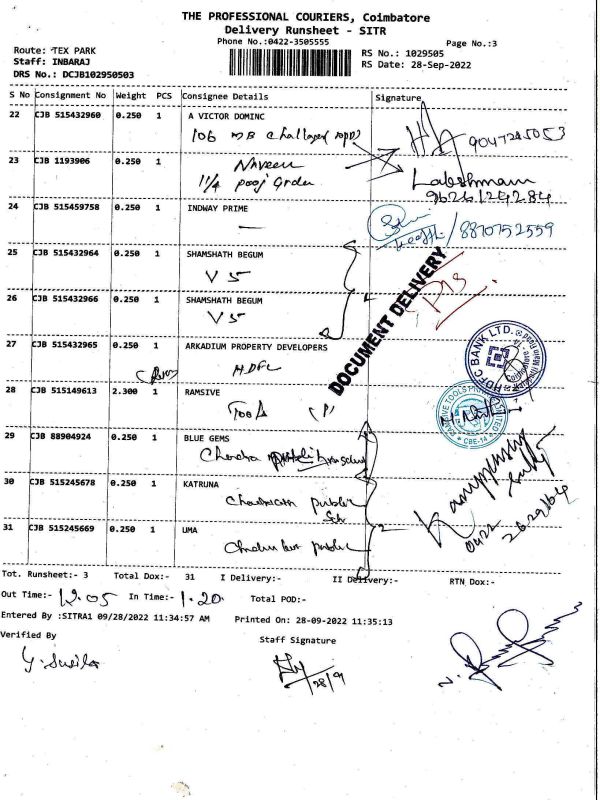 THE PROFESSIONAL COURIERS, Coimbatore
Delivery Runsheet - SITR
Phone No.:0422-3505555
Page No.:3
Route: TEX PARK
Staff: INBARAJ
DRS No.: DCJB102950503
RS No.: 1029505
RS Date: 28-Sep-2022
S No Consignment No Weight PCS Consignee Details Signature
22 CJB 515432960 0.250 1 A VICTOR DOMINC
106
9047245053
23 CJB 1193906 0.250 1 Naveen
11/4
Lakshmanan
9626124284
24 CJB 515459758 0.250 1 INDWAY PRIME
8870752559
25 CJB 515432964 0.250 1 SHAMSHATH BEGUM
V S
26 CJB 515432966 0.250 1 SHAMSHATH BEGUM
V S
DOCUMENT DELIVERY
27 CJB 515432965 0.250 1 ARKADIUM PROPERTY DEVELOPERS
HDFC
HDFC BANK LTD.
28 CJB 515149613 2.300 1 RAMSIVE
Tool
RAMSIVE TOOLS PRIVATE LIMITED
CBE-14
29 CJB 88904924 0.250 1 BLUE GEMS
Chandra
30 CJB 515245678 0.250 1 KATRUNA
Public
31 CJB 515245669 0.250 1 UMA
Public
Tot. Runsheet:- 3 Total Dox:- 31 I Delivery:- II Delivery:- RTN Dox:-
Out Time:- 12.05 In Time:- 1.20 Total POD:-
Entered By :SITRA1 09/28/2022 11:34:57 AM Printed On: 28-09-2022 11:35:13
Verified By Staff Signature
28/9